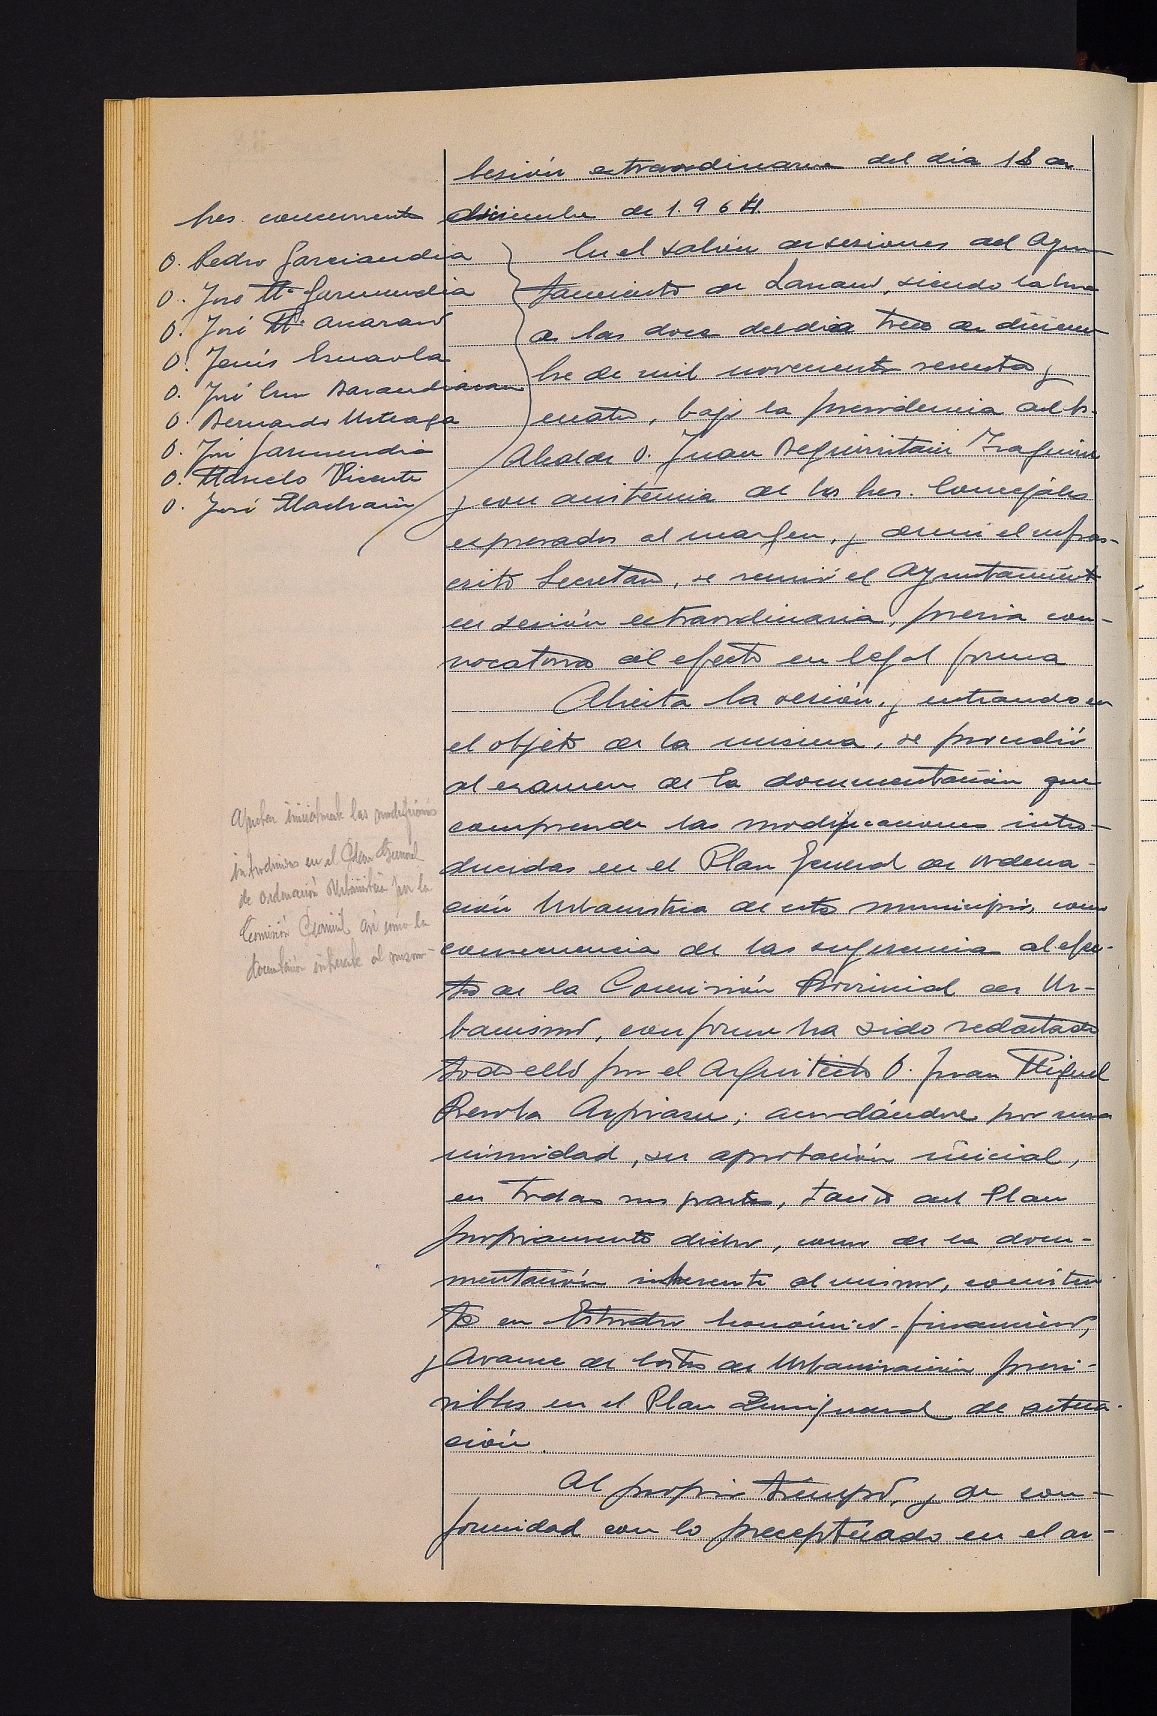 Sesión extraordinaria del día 13 de
diciembre de 1.964.
Sres. concurrentes
D. Pedro Garciandia
D. José Mª Garmendia
D. José Mª
D. Jesús Esnaola
D. José Luis Barandiaran
D. Bernardo Urteaga
D. José Garmendia
D. Marcelo Vicente
D. José
En el salón de sesiones del Ayun
tamiento de Lazcano, siendo la hora
de las doce del día trece de diciem
bre de mil novecientos sesenta y
cuatro, bajo la presidencia del Sr.
Alcalde D. Juan Beguiristain
y con asistencia de los Sres. Concejales
expresados al margen, y de mi el infras-
crito Secretario, se reunió el Ayuntamiento
en sesión extraordinaria, previa con-
vocatoria al efecto en legal forma
Abierta la sesión, y entrando en
el objeto de la misma, se procedió
al examen de la documentación que
comprende las modificaciones intro-
ducidas en el Plan General de Ordena-
ción Urbanística de este municipio, como
consecuencia de las sugerencias al efec-
to de la Comisión Provincial de Ur-
banismo, conforme ha sido redactado
todo ello por el Arquitecto D. Juan Miguel
Aspiazu; acordándose por una
nimidad, su aprobación inicial,
en todas sus partes, tanto del Plan
propiamente dicho, como de la docu-
mentación inherente al mismo, consisten
te en Estudio Económico-financiero,
y Avance de Costos de Urbanización previ-
sibles en el Plan Quinquenal de actua-
ción.
Al propio tiempo, y de con-
formidad con lo preceptuado en el ar-
Aprobar inicialmente las modificaciones
introducidas en el Plan General
de Ordenación Urbanística por la
Comisión Provincial así como la
documentación inherente al mismo